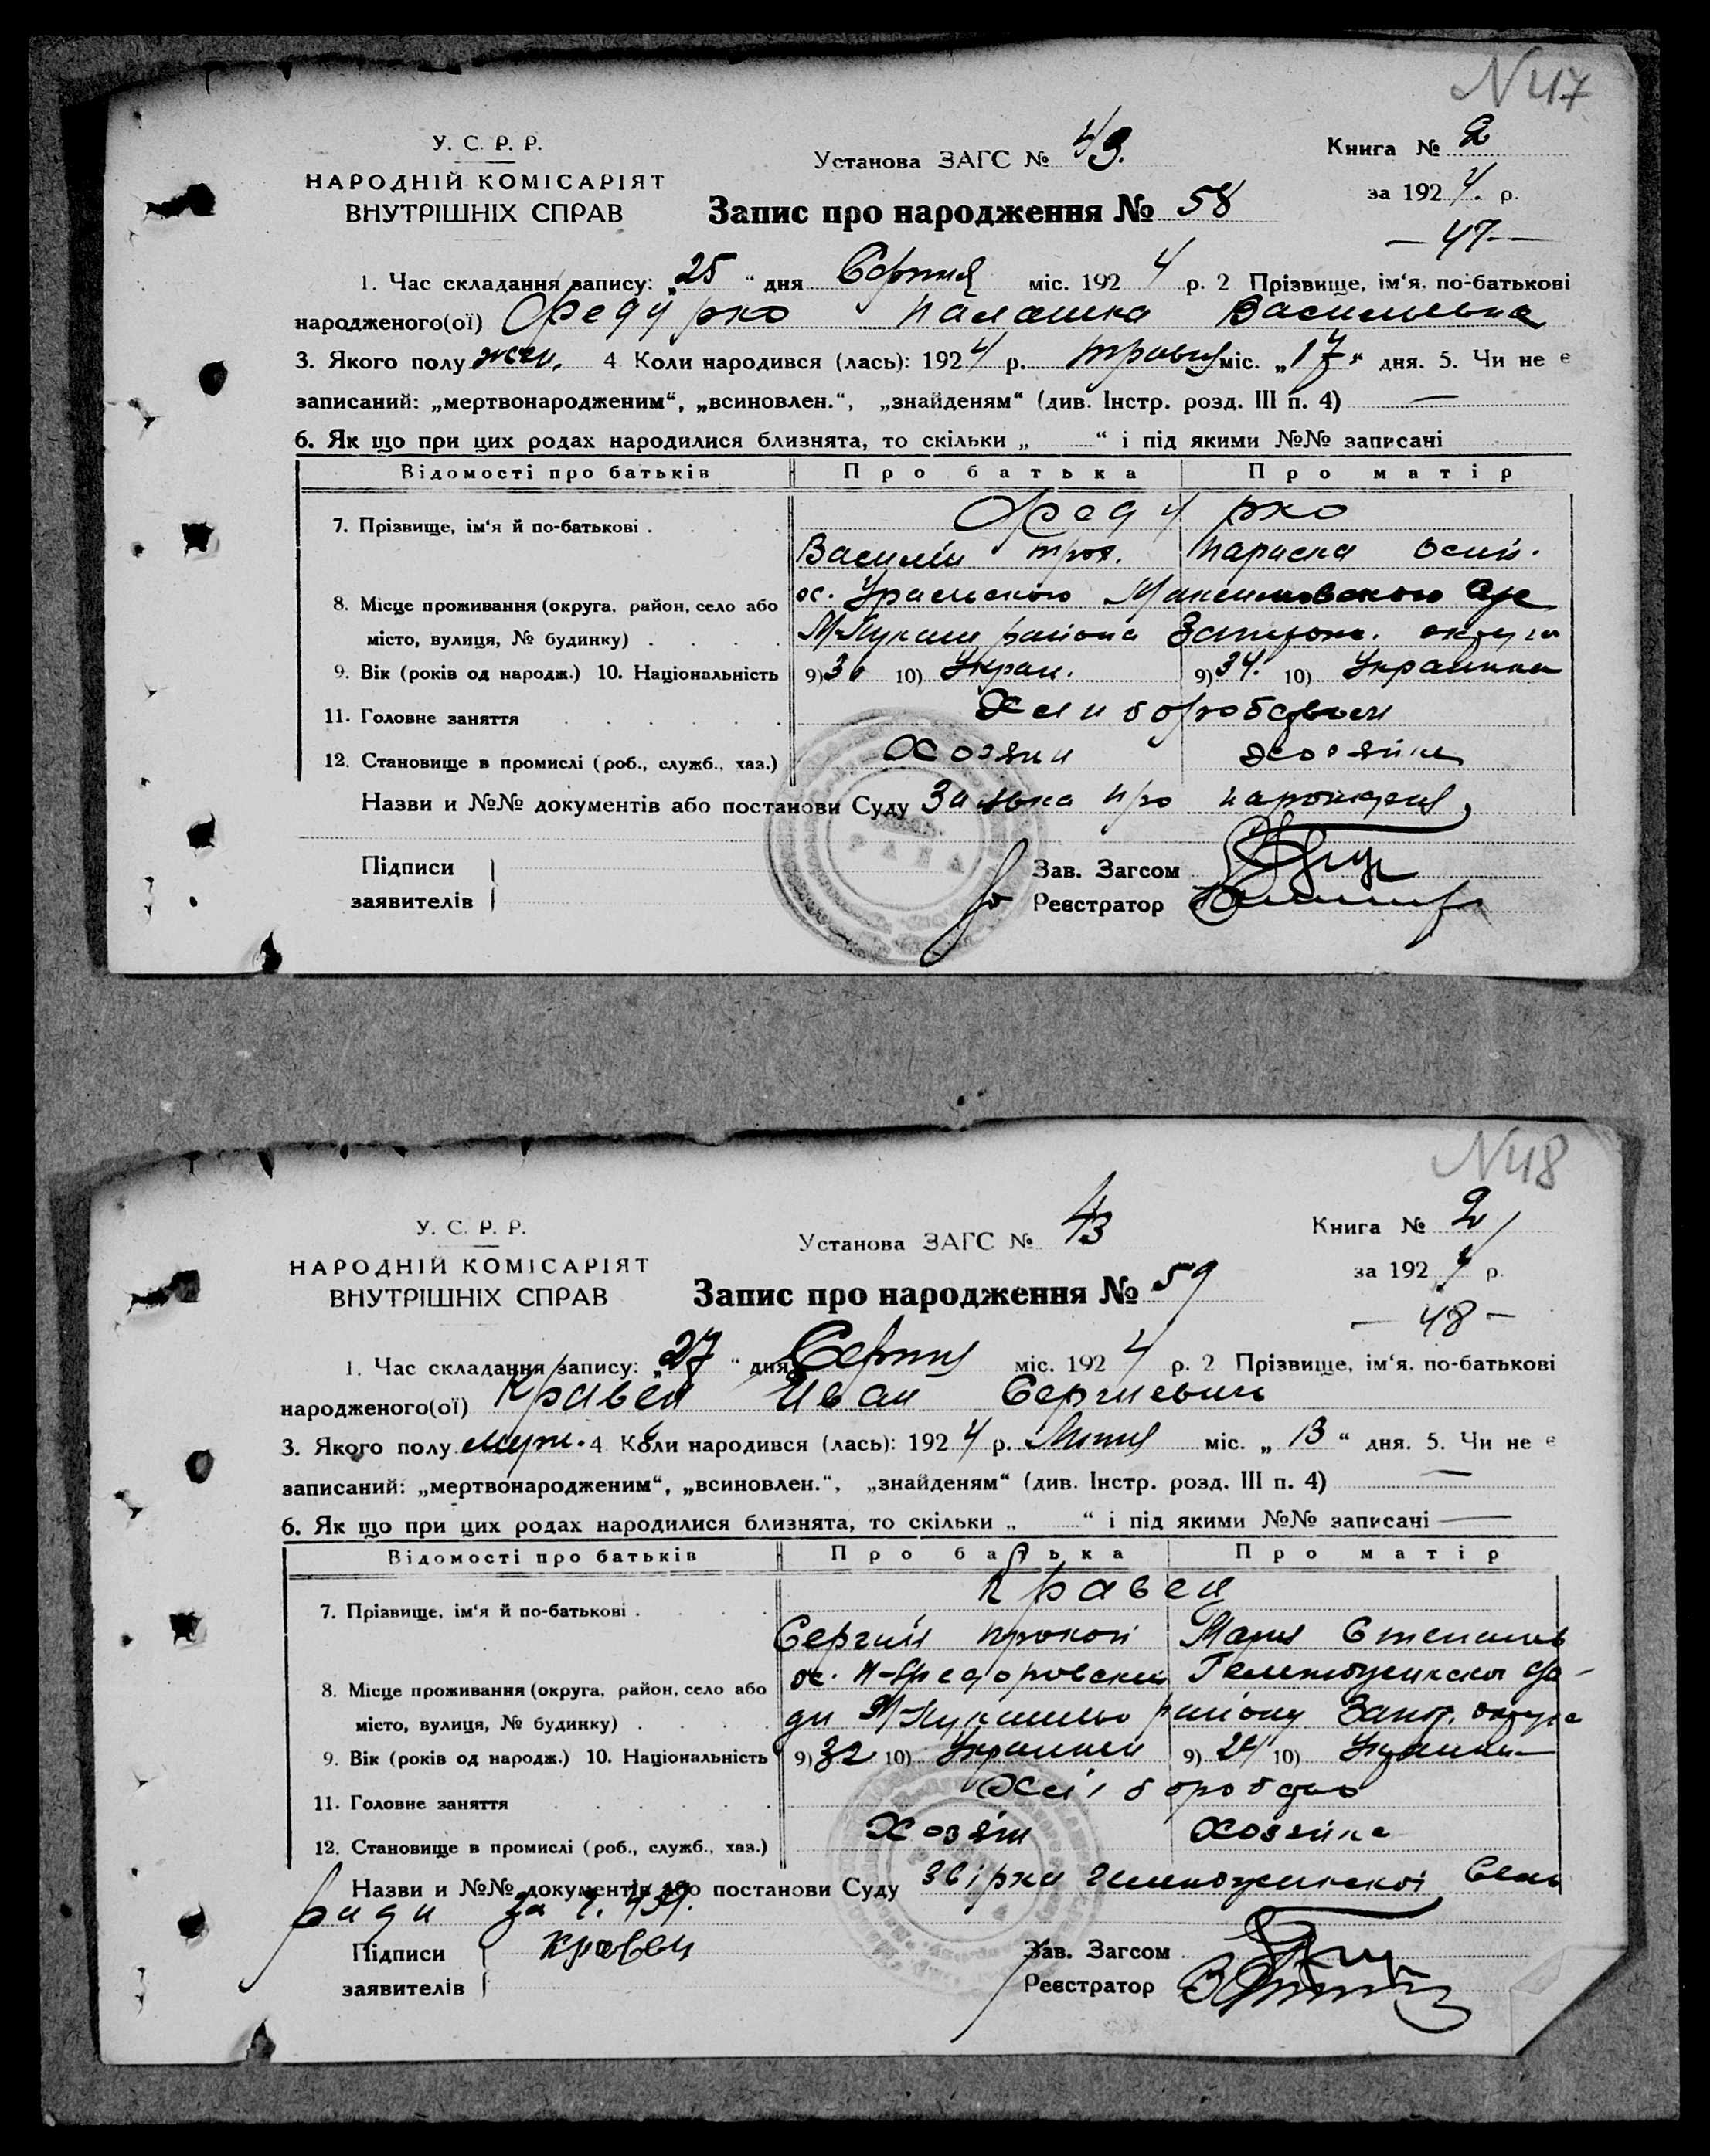 N 47
У. С. Р. Р.
НАРОДНІЙ КОМІСАРІЯТ
ВНУТРІШНІХ СПРАВ
Установа ЗАГС № 43.
Книга № 2
за 1924. р.
Запис про народження № 58
— 47 —
1. Час складання запису: „25“ дня Серпня міс. 1924 р. 2 Прізвище, ім‘я, по-батькові
народженого(ої) Федурко Палашка Васильевна
3. Якого полу жен. 4 Коли народився (лась): 1924 р. травня міс. „17“ дня. 5. Чи не є
записаний: „мертвонародженим“, „всиновлен.“, „знайденям“ (див. Інстр. розд. III п. 4) —
6. Як що при цих родах народилися близнята, то скільки „ “ і під якими №№ записані
Відомості про батьків Про батька Про матір
7. Прізвище, ім‘я й по-батькові . Федурко
Василій Троx. Параска Осип.
8. Місце проживання (округа, район, село або ос.
місто, вулиця, № будинку) района Запорож. округи
9. Вік (років од народж.) 10. Національність 9) 30 10) Украи. 9) 34. 10) Украинка
11. Головне заняття Хлиборобство
12. Становище в промислі (роб., служб., хаз.) Хозяин хозяйка
Назви и №№ документів або постанови Суду Заявка про народжения
РАДА
Підписи
заявителів
Зав. Загсом
Реєстратор
N 48
У. С. Р. Р.
НАРОДНІЙ КОМІСАРІЯТ
ВНУТРІШНІХ СПРАВ
Установа ЗАГС № 43
Книга № 2
за 1924 р.
Запис про народження № 59
— 48 —
1. Час складання запису: „27“ дня Серпня міс. 1924 р. 2 Прізвище, ім‘я, по-батькові
народженого(ої) Кравец Иван Сергиевич
3. Якого полу муж. 4 Коли народився (лась): 1924 р. Липня міс. „13“ дня. 5. Чи не є
записаний: „мертвонародженим“, „всиновлен.“, „знайденям“ (див. Інстр. розд. III п. 4) —
6. Як що при цих родах народилися близнята, то скільки „ “ і під якими №№ записані —
Відомості про батьків Про батька Про матір
7. Прізвище, ім‘я й по-батькові . Кравец
Сергий Прокоп Мария Степанов
8. Місце проживання (округа, район, село або ос. Н-Федоровски
місто, вулиця, № будинку) району Запор. округа
9. Вік (років од народж.) 10. Національність 9) 32 10) Украинец 9) 24 10) Украинка
11. Головне заняття Хліборобство
12. Становище в промислі (роб., служб., хаз.) Хозяін Хозяйка
Назви и №№ документів або постанови Суду звірка Сель
ради за
Підписи Кравец
заявителів
Зав. Загсом
Реєстратор